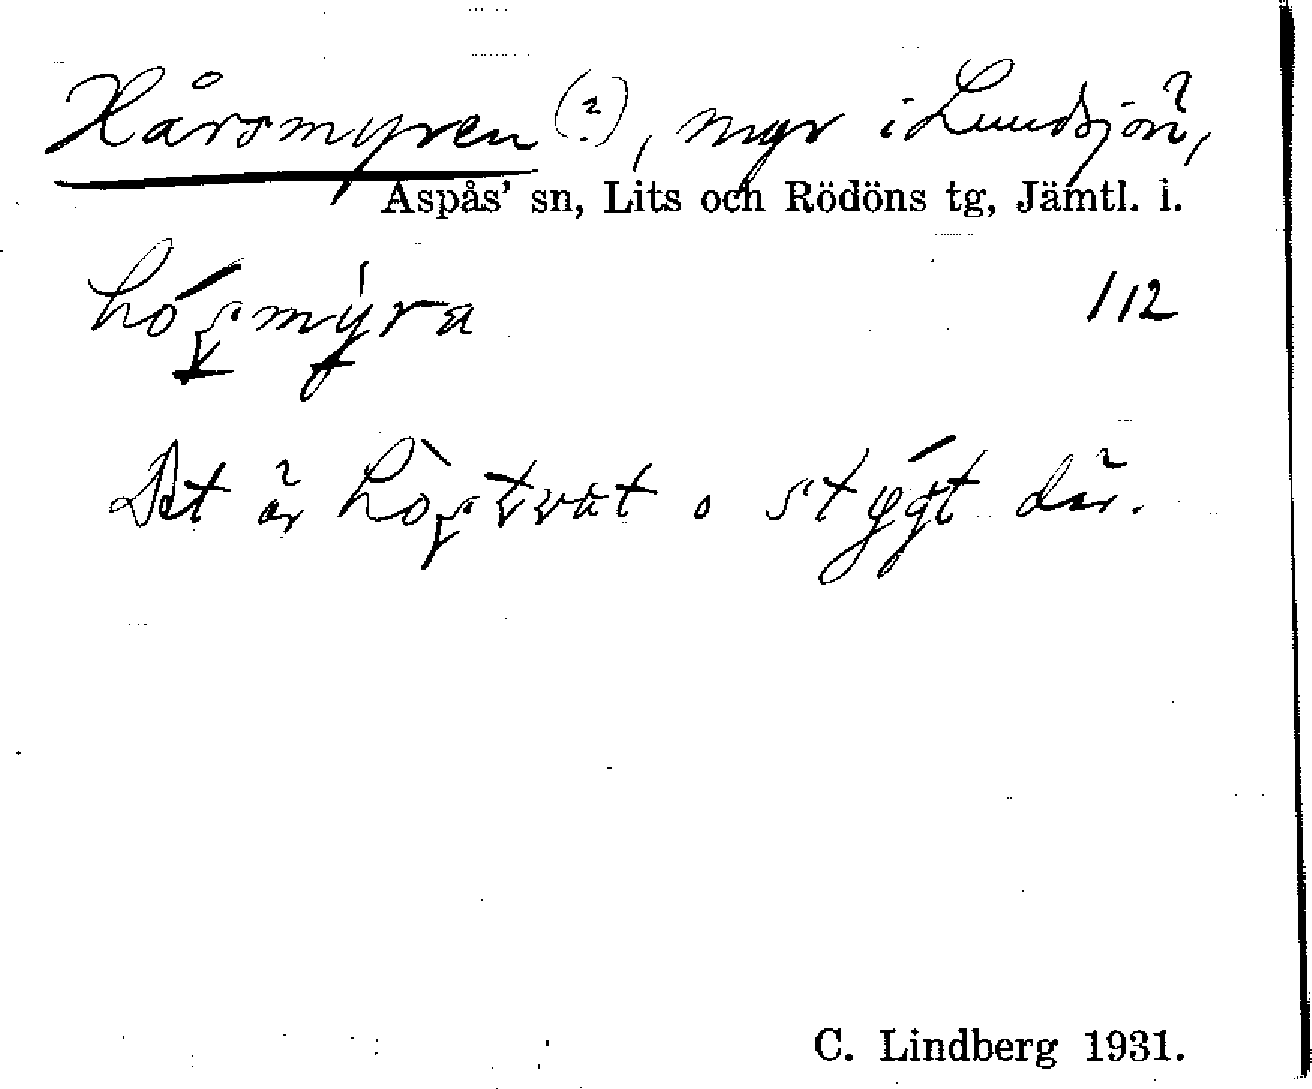 Hårsmyren (?), myr i Lundsjön,
Aspås' sn, Lits och Rödöns tg, Jämtl. l.
112
Det är o stýgt där.
C. Lindberg 1931.